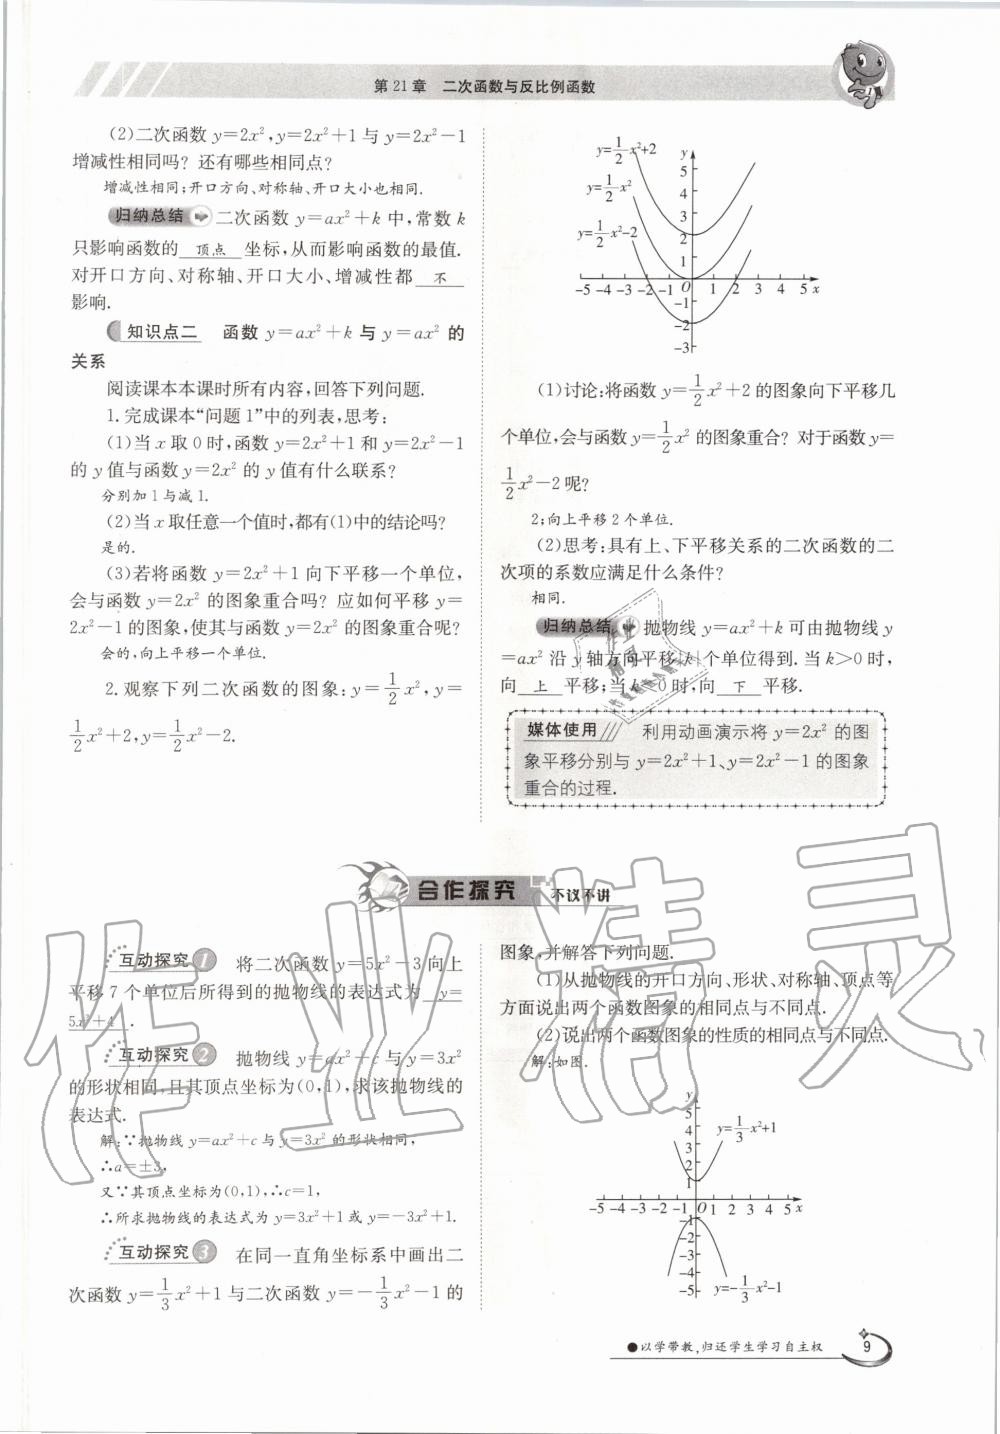 第21章 二次函数与反比例函数
(2)二次函数 y=2x²,y=2x²+1 与 y=2x²-1
增减性相同吗？还有哪些相同点？
增减性相同;开口方向、对称轴、开口大小也相同.
归纳总结 二次函数 y=ax²+k 中,常数 k
只影响函数的 顶点 坐标,从而影响函数的最值.
对开口方向、对称轴、开口大小、增减性都 不
影响.
知识点二 函数 y=ax²+k 与 y=ax² 的
关系
阅读课本本课时所有内容,回答下列问题.
1.完成课本“问题1”中的列表,思考:
(1)当 x 取 0 时,函数 y=2x²+1 和 y=2x²-1
的 y 值与函数 y=2x² 的 y 值有什么联系？
分别加1与减1.
(2)当 x 取任意一个值时,都有(1)中的结论吗？
是的.
(3)若将函数 y=2x²+1 向下平移一个单位,
会与函数 y=2x² 的图象重合吗？应如何平移 y=
2x²-1 的图象,使其与函数 y=2x² 的图象重合呢？
会的,向上平移一个单位.
2.观察下列二次函数的图象:y=1/2x²,y=
1/2x²+2,y=1/2x²-2.
y=1/2x²+2
y=1/2x²
y=1/2x²-2
y
5
4
3
2
1
-5 -4 -3 -2 -1 O 1 2 3 4 5 x
-1
-2
-3
(1)讨论:将函数 y=1/2x²+2 的图象向下平移几
个单位,会与函数 y=1/2x² 的图象重合？对于函数 y=
1/2x²-2 呢？
2;向上平移2个单位.
(2)思考:具有上、下平移关系的二次函数的二
次项的系数应满足什么条件？
相同.
归纳总结 抛物线 y=ax²+k 可由抛物线 y
=ax² 沿 y 轴方向平移|k|个单位得到.当 k>0 时,
向 上 平移;当 k<0 时,向 下 平移.
媒体使用 利用动画演示将 y=2x² 的图
象平移分别与 y=2x²+1、y=2x²-1 的图象
重合的过程.
合作探究 不议不讲
互动探究 1 将二次函数 y=5x²-3 向上
平移 7 个单位后所得到的抛物线的表达式为 y=
5x²+4 .
互动探究 2 抛物线 y=ax²+c 与 y=3x²
的形状相同,且其顶点坐标为(0,1),求该抛物线的
表达式.
解:∵抛物线 y=ax²+c 与 y=3x² 的形状相同,
∴a=±3,
又∵其顶点坐标为(0,1),∴c=1,
∴所求抛物线的表达式为 y=3x²+1 或 y=-3x²+1.
互动探究 3 在同一直角坐标系中画出二
次函数 y=1/3x²+1 与二次函数 y=-1/3x²-1 的
图象,并解答下列问题.
(1)从抛物线的开口方向、形状、对称轴、顶点等
方面说出两个函数图象的相同点与不同点.
(2)说出两个函数图象的性质的相同点与不同点.
解:如图.
y
5
4
3
2
1
y=1/3x²+1
-5 -4 -3 -2 -1 O 1 2 3 4 5 x
-1
-2
-3
-4
-5
y=-1/3x²-1
●以学带教,归还学生学习自主权
9
作业精灵